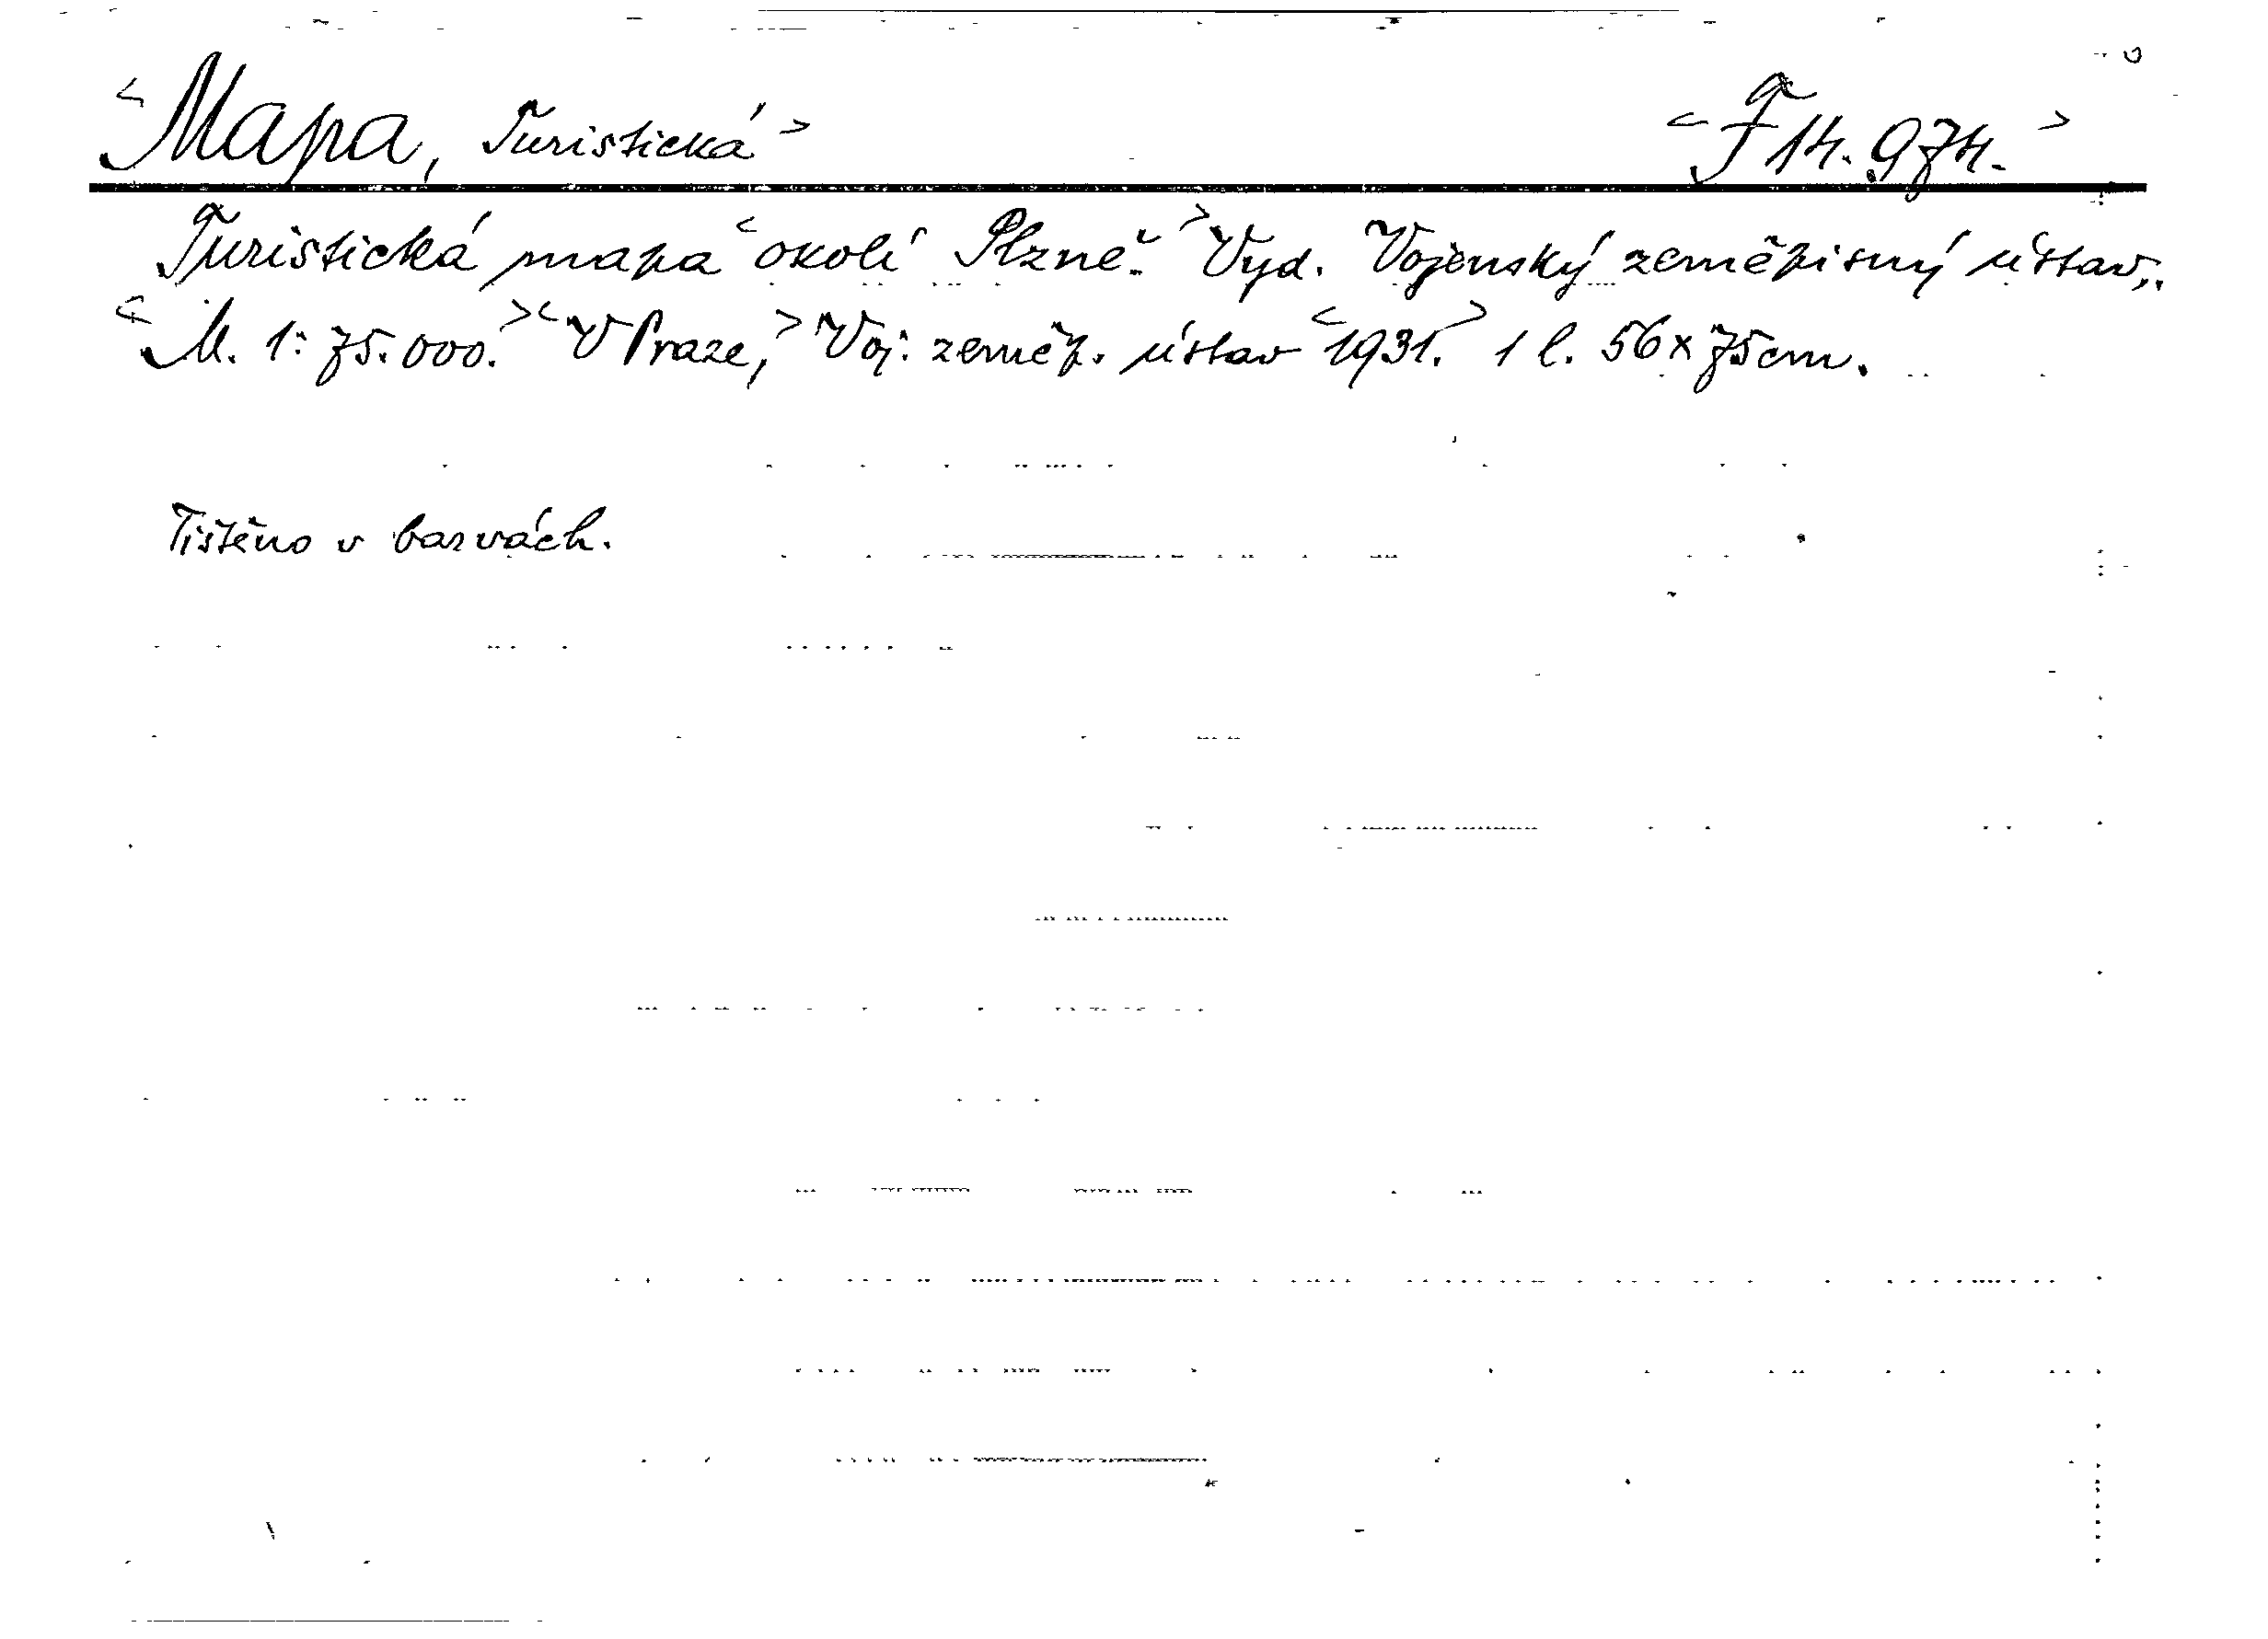 <Mapa, Turistická> <F 14.974.>
Turistická mapa <okolí Plzně.> Vyd. Vojenský zeměpisný ústav.
<M. 1:75.000.> <V Praze,> Voj. zeměp. ústav <1931.> 1 l. 56 x 75 cm.
Tištěno v barvách.